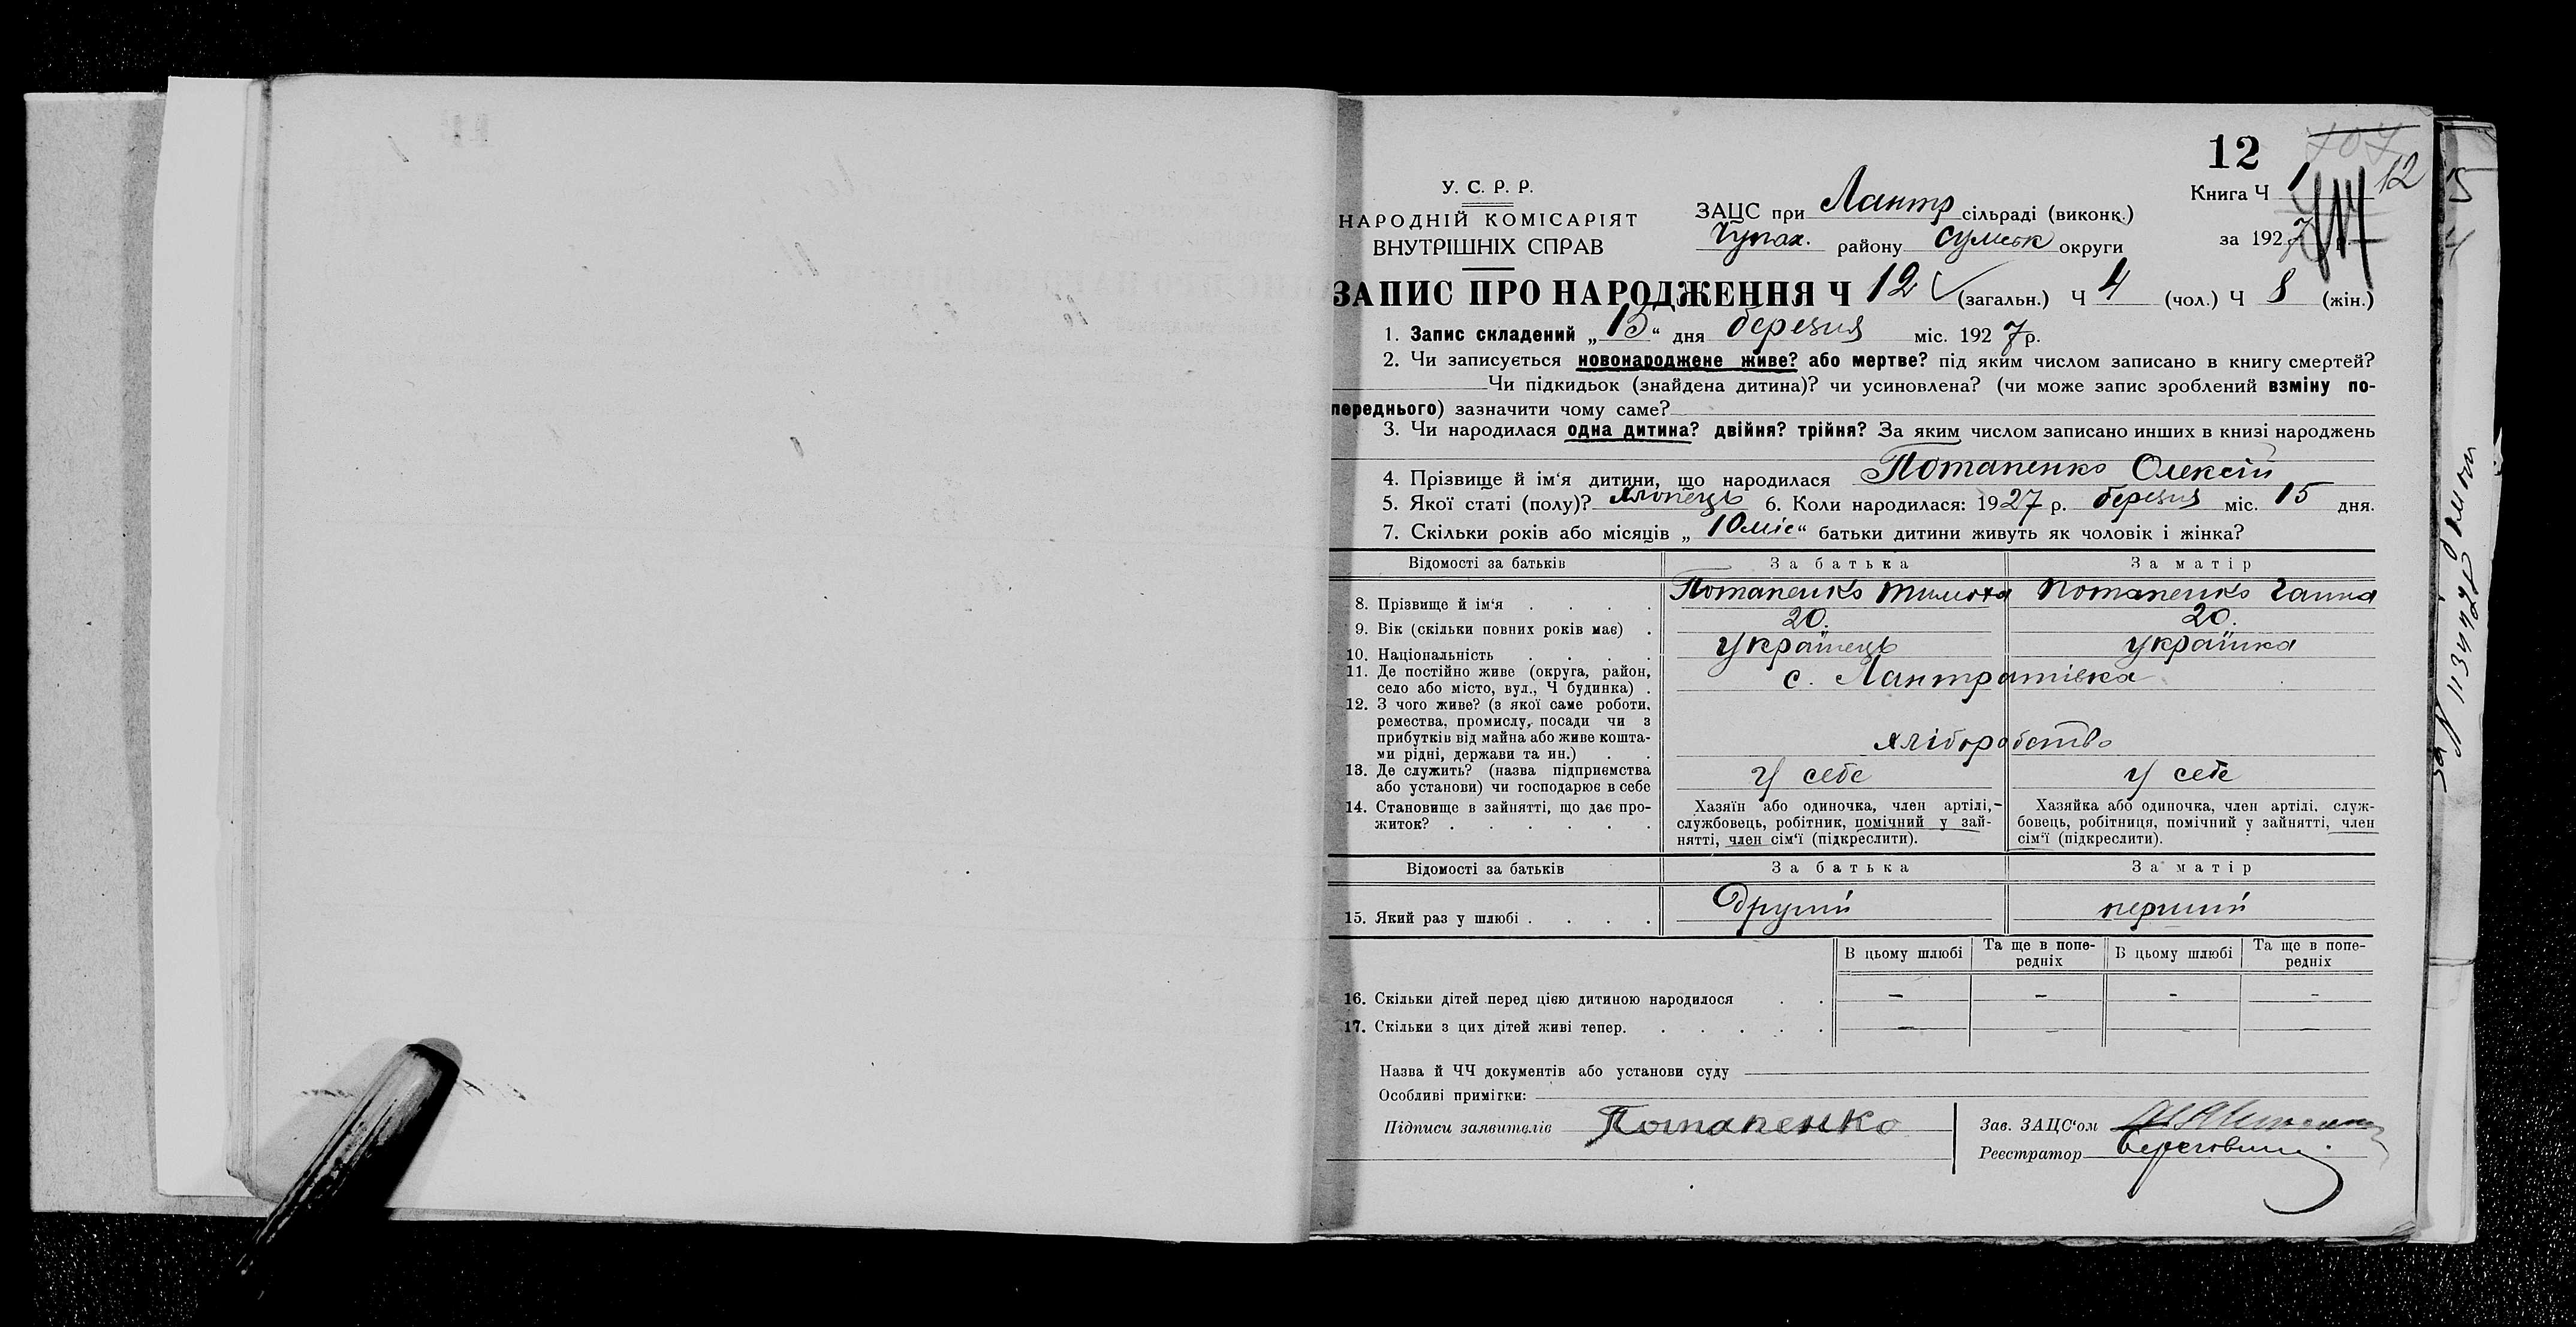 12
12
У. С. Р. Р.
НАРОДНІЙ КОМІСАРІЯТ
ВНУТРІШНІХ СПРАВ
ЗАЦС при Лантр сільраді (виконк.)
Чупах. району Сумськ округи
Книга Ч 1
за 1927 р.
ЗАПИС ПРО НАРОДЖЕННЯ Ч 12 (загальн.) Ч 4 (чол.) Ч 8 (жін.)
1. Запис складений „15“ дня березня міс. 1927 р.
2. Чи записується новонароджене живе? або мертве? під яким числом записано в книгу смертей?
Чи підкидьок (знайдена дитина)? чи усиновлена? (чи може запис зроблений взміну по-
переднього) зазначити чому саме?
3. Чи народилася одна дитина? двійня? трійня? За яким числом записано инших в книзі народжень
4. Прізвище й ім‘я дитини, що народилася Потапенко Олексій
5. Якої статі (полу)? хлопець 6. Коли народилася: 1927 р. березня міс. 15 дня.
7. Скільки років або місяців „10 міс“ батьки дитини живуть як чоловік і жінка?
Відомості за батьків За батька За матір
8. Прізвище й ім‘я . . . . Потапенко Тимоха Потапенко Ганна
9. Вік (скільки повних років має) . 20. 20.
10. Національність . . . . Українець українка
11. Де постійно живе (округа, район,
село або місто, вул., Ч будинка) . с. Лантратівка
12. З чого живе? (з якої саме роботи,
ремества, промислу, посади чи з
прибутків від майна або живе кошта-
ми рідні, держави та ин.) . . хліборобство
13. Де служить? (назва підприємства
або установи) чи господарює в себе У себе У себе
14. Становище в зайнятті, що дає про-
житок? . . . . . .
Хазяїн або одиночка, член артілі,-
службовець, робітник, помічний у зай-
нятті, член сім‘ї (підкреслити).
Хазяйка або одиночка, член артілі, служ-
бовець, робітниця, помічний у зайнятті, член
сім‘ї (підкреслити).
Відомості за батьків За батька За матір
15. Який раз у шлюбі . . . . Другий перший
В цьому шлюбі Та ще в попе-
редніх В цьому шлюбі Та ще в попе-
редніх
16. Скільки дітей перед цією дитиною народилося . . – – – –
17. Скільки з цих дітей живі тепер. . . . . . – – – –
Назва й ЧЧ документів або установи суду
Особливі примітки:
Підписи заявителів Потапенко
Зав. ЗАЦС‘ом
Реєстратор Береговий